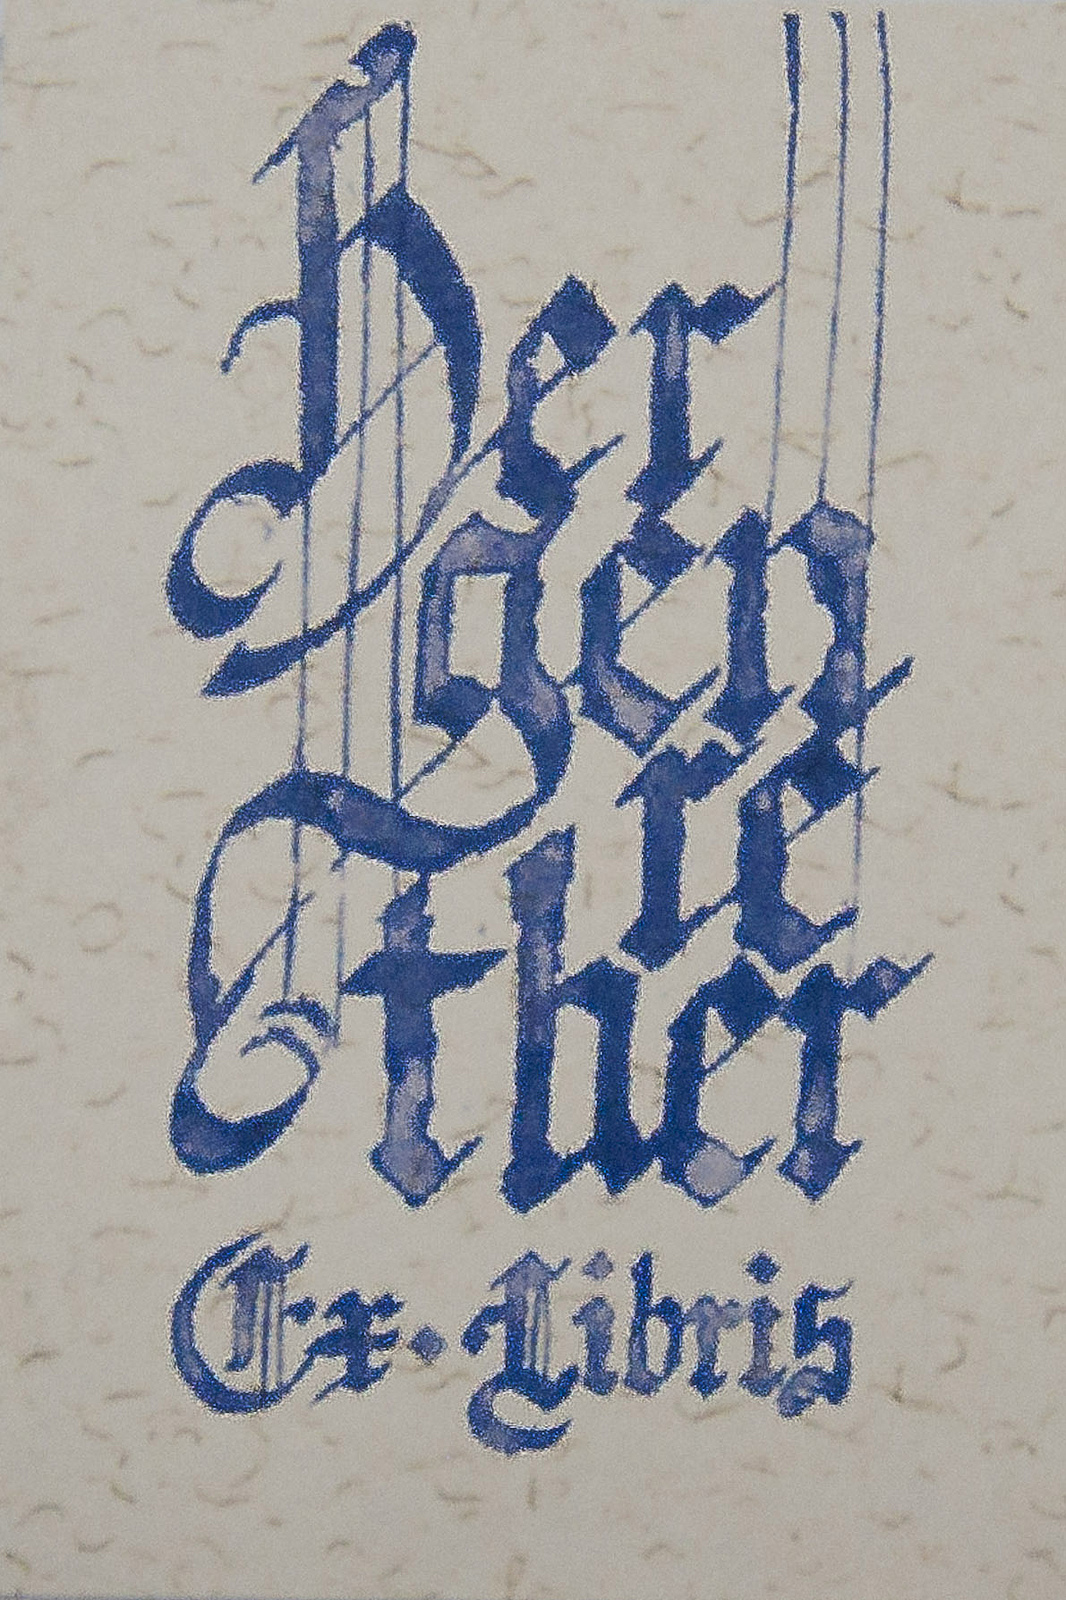 Her
gen
re
ther
Ex·Libris